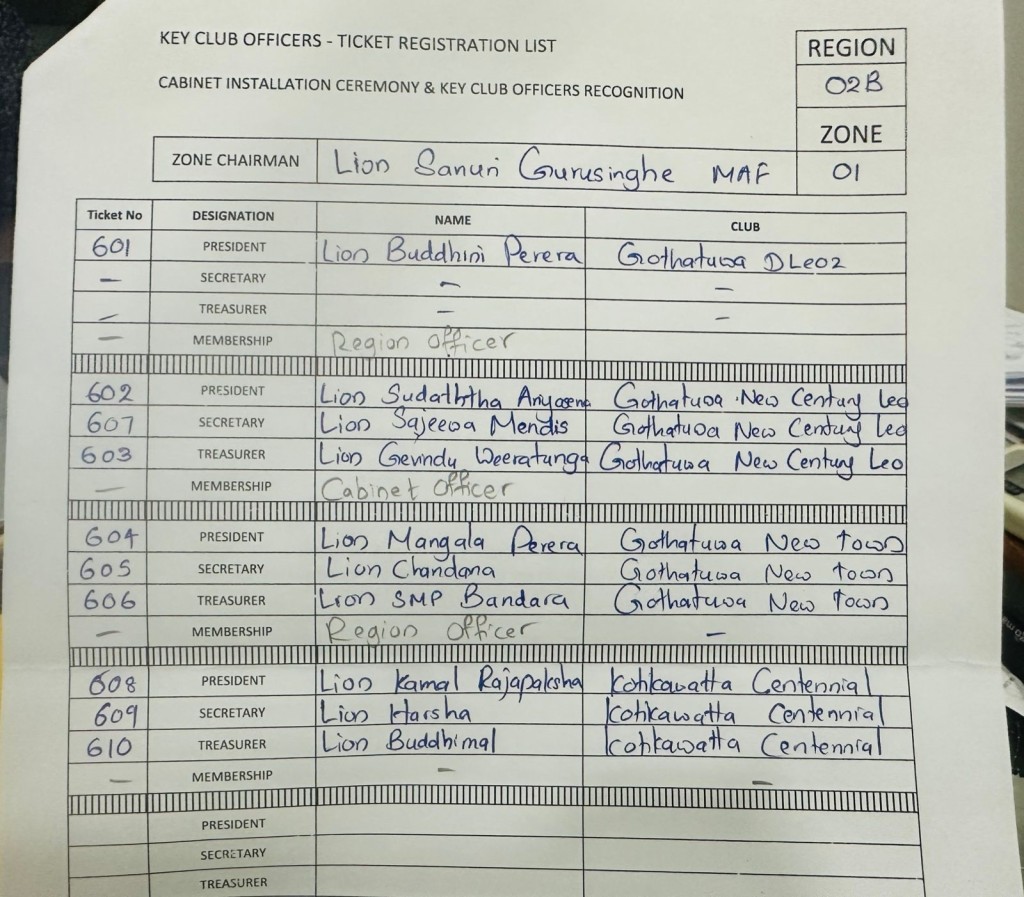 KEY CLUB OFFICERS - TICKET REGISTRATION LIST
CABINET INSTALLATION CEREMONY & KEY CLUB OFFICERS RECOGNITION
REGION
02B
ZONE
01
ZONE CHAIRMAN Lion Sanuri Gurusinghe MAF
Ticket No DESIGNATION NAME CLUB
601 PRESIDENT Lion Buddhini Perera Gothatuwa DLeo2
– SECRETARY – –
– TREASURER – –
– MEMBERSHIP Region Officer
602 PRESIDENT Lion Sudaththa Ariyasena Gothatuwa New Century Leo
607 SECRETARY Lion Sajeewa Mendis Gothatuwa New Century Leo
603 TREASURER Lion Gevindu Weeratunga Gothatuwa New Century Leo
– MEMBERSHIP Cabinet Officer
604 PRESIDENT Lion Mangala Perera Gothatuwa New Town
605 SECRETARY Lion Chandana Gothatuwa New Town
606 TREASURER Lion SMP Bandara Gothatuwa New Town
– MEMBERSHIP Region Officer –
608 PRESIDENT Lion Kamal Rajapaksha Kotikawatta Centennial
609 SECRETARY Lion Harsha Kotikawatta Centennial
610 TREASURER Lion Buddhimal Kotikawatta Centennial
– MEMBERSHIP – –
PRESIDENT
SECRETARY
TREASURER